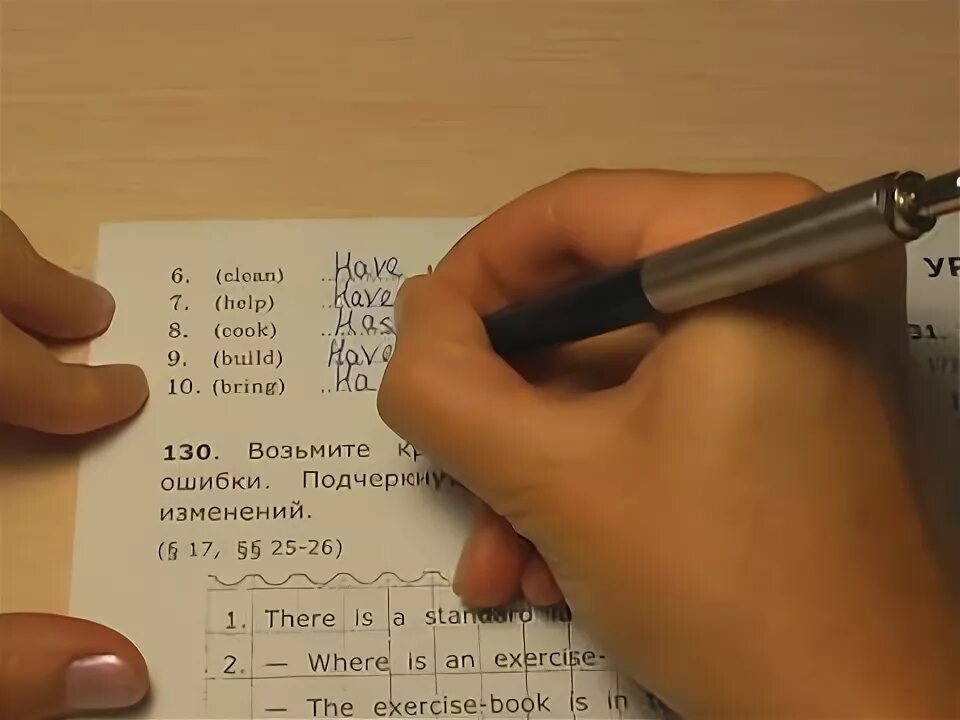 6. (clean) Have
7. (help) Have
8. (cook) Has
9. (build) Have
10. (bring) Ha
130. Возьмите
ошибки. Подчеркну
изменений.
(§ 17, §§ 25-26)
1. There is a standard
2. — Where is an exercise-
— The exercise-book is in
УР
31.